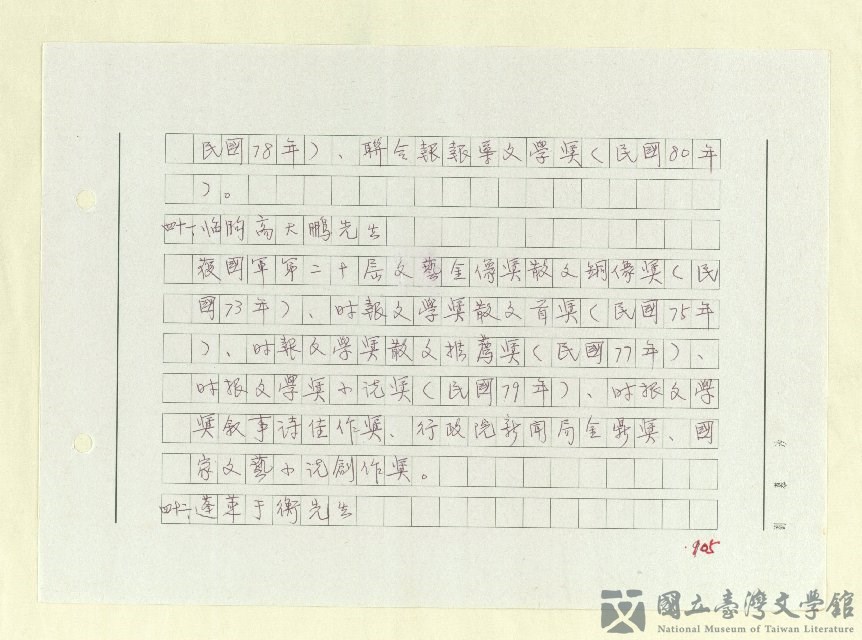 民國78年）、聯合報報導文學獎（民國80年
）。
四十、臨朐高大鵬先生
獲國軍第二十屆文藝金像獎散文銅像獎（民
國73年）、时報文學獎散文首獎（民國75年
）、时報文學獎散文推薦獎（民國77年）、
时报文學獎小说獎（民國79年）、时报文學
獎叙事诗佳作獎、行政院新聞局金鼎獎、國
家文藝小说創作獎。
蓬萊于衡先生
905
國立臺灣文學館
National Museum of Taiwan Literature